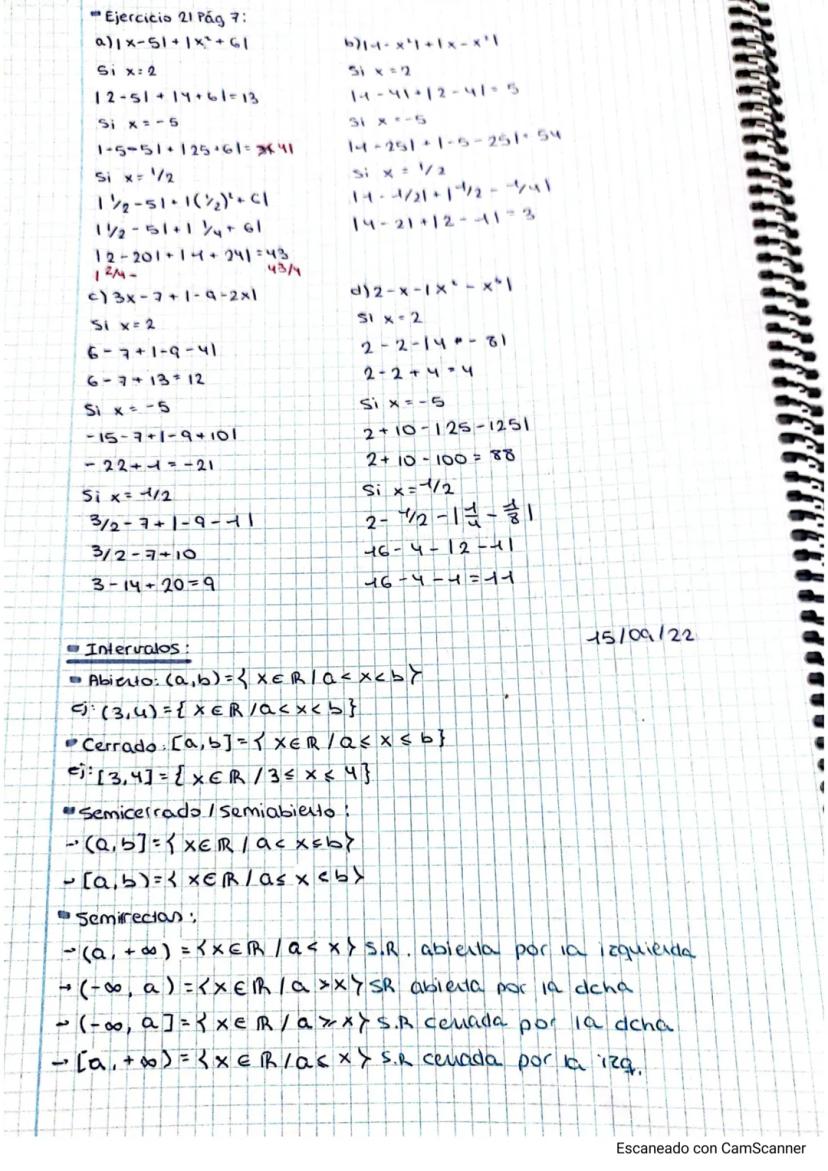 Ejercicio 21 Pág 7:
a) |x-5| + |x²+6|
Si x=2
|2-5| + |4+6| = 13
Si x=-5
|-5-5| + |25+6| = 41
Si x=1/2
|1/2-5| + |(1/2)²+6|
|1/2-5| + |1/4+6|
|2-20| + |1+24| = 43
|2/4- 43/4
b) |1-x²| + |x-x²|
Si x=2
|1-4| + |2-4| = 5
Si x=-5
|1-25| + |-5-25| = 54
Si x=1/2
|1-1/2| + |1/2-1/4|
|4-2| + |2-1| = 3
c) 3x-7+|-9-2x|
Si x=2
6-7+|-9-4|
6-7+13=12
Si x=-5
-15-7+|-9+10|
-22+1=-21
Si x=1/2
3/2-7+|-9-1|
3/2-7+10
3-14+20=9
d) 2-x-|x²-x³|
Si x=2
2-2-|4-8|
2-2+4=4
Si x=-5
2+10-|25-125|
2+10-100=88
Si x=1/2
2-1/2-|1/4-1/8|
16-4-|2-1|
16-4-1=11
15/09/22
Intervalos:
Abierto: (a,b)={x∈ℝ/a<x<b}
ej: (3,4)={x∈ℝ/a<x<b}
Cerrado: [a,b]={x∈ℝ/a≤x≤b}
ej: [3,4]={x∈ℝ/3≤x≤4}
Semicerrado/Semiabierto:
→(a,b]={x∈ℝ/a<x≤b}
→[a,b)={x∈ℝ/a≤x<b}
Semirectas:
→(a,+∞)={x∈ℝ/a<x} S.R. abierta por la izquierda
→(-∞,a)={x∈ℝ/a>x} SR abierta por la dcha
→(-∞,a]={x∈ℝ/a≥x} S.R cerrada por la dcha
→[a,+∞)={x∈ℝ/a≤x} S.R cerrada por la izq.
Escaneado con CamScanner